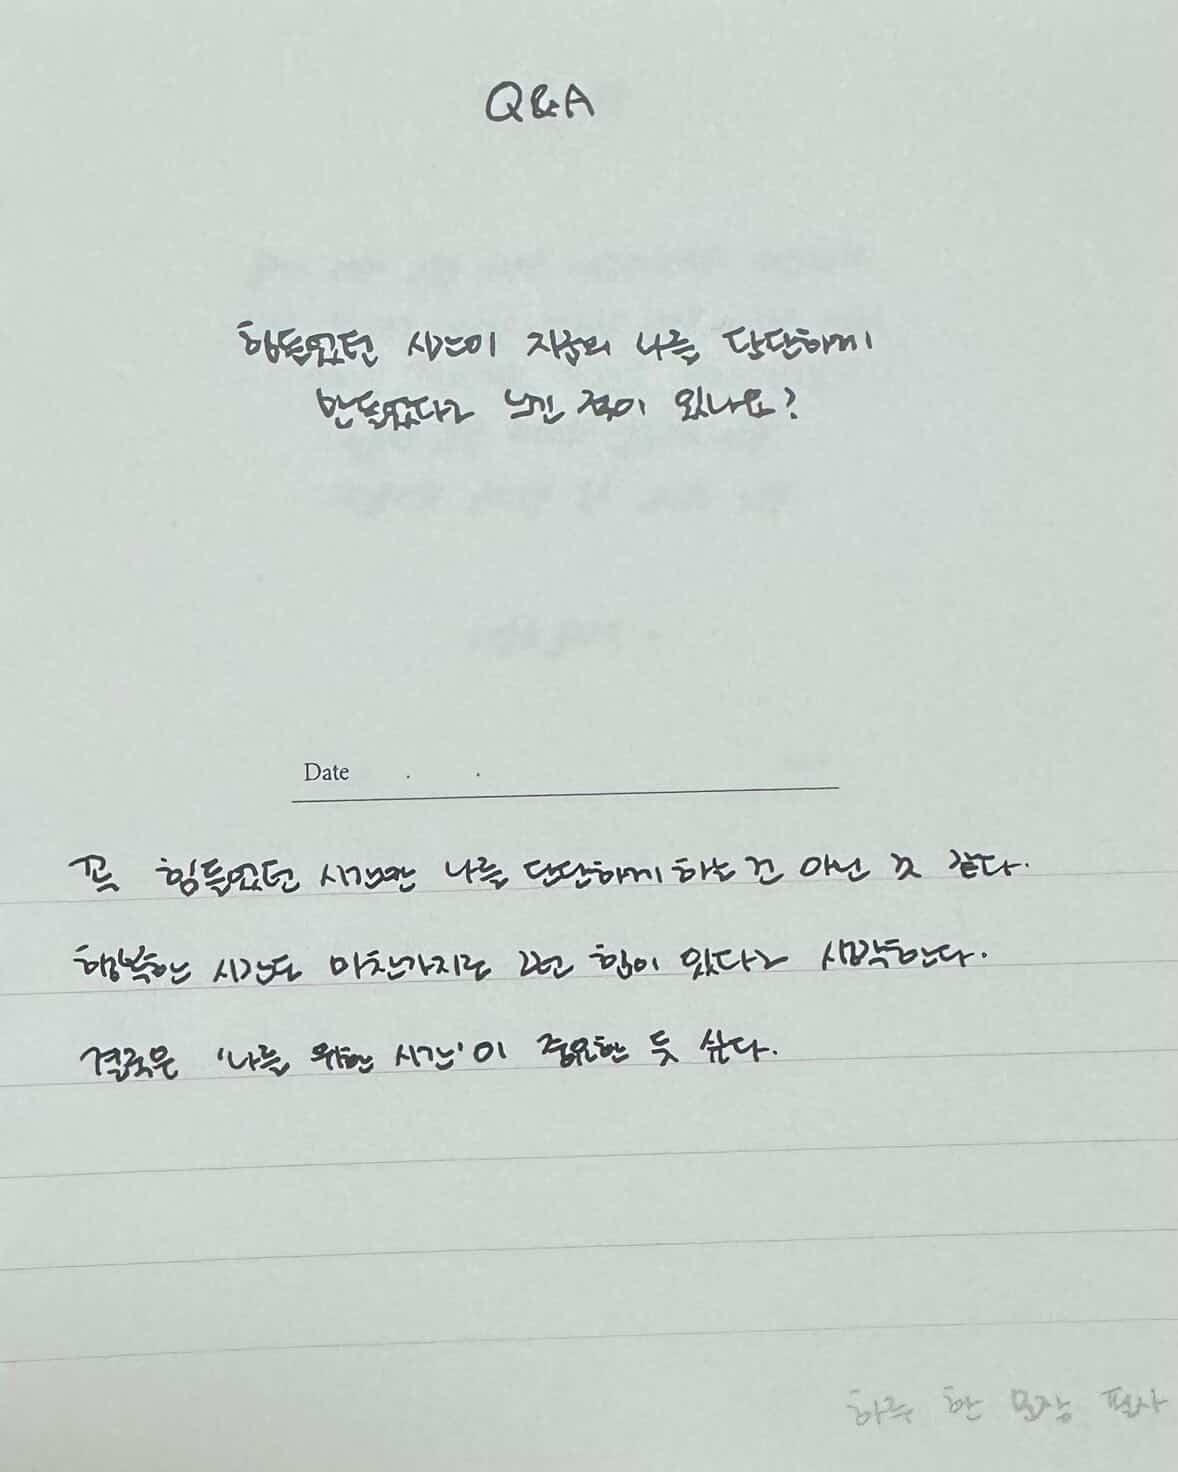 Q&A
힘들었던 시간이 지금의 나를 단단하게
만들었다고 느낀 적이 있나요?
Date . .
꼭 힘들었던 시간만 나를 단단하게 하는 건 아닌 것 같다.
행복한 시간도 마찬가지로 그런 힘이 있다고 생각한다.
결국은 '나를 위한 시간'이 중요한 듯 싶다.
하루 한 문장 필사